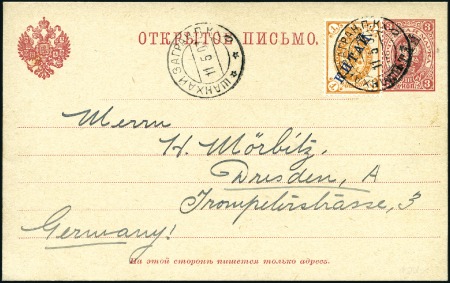 ОТКРЫТОЕ ПИСЬМО.
ШАНХАЙ ЗАГРАН. П. К.
11 5 0
КИТАЙ
3
3
Herrn
H. Mörbitz,
Dresden, A
Trompeterstrasse, 3
Germany!
На этой сторонѣ пишется только адресъ.